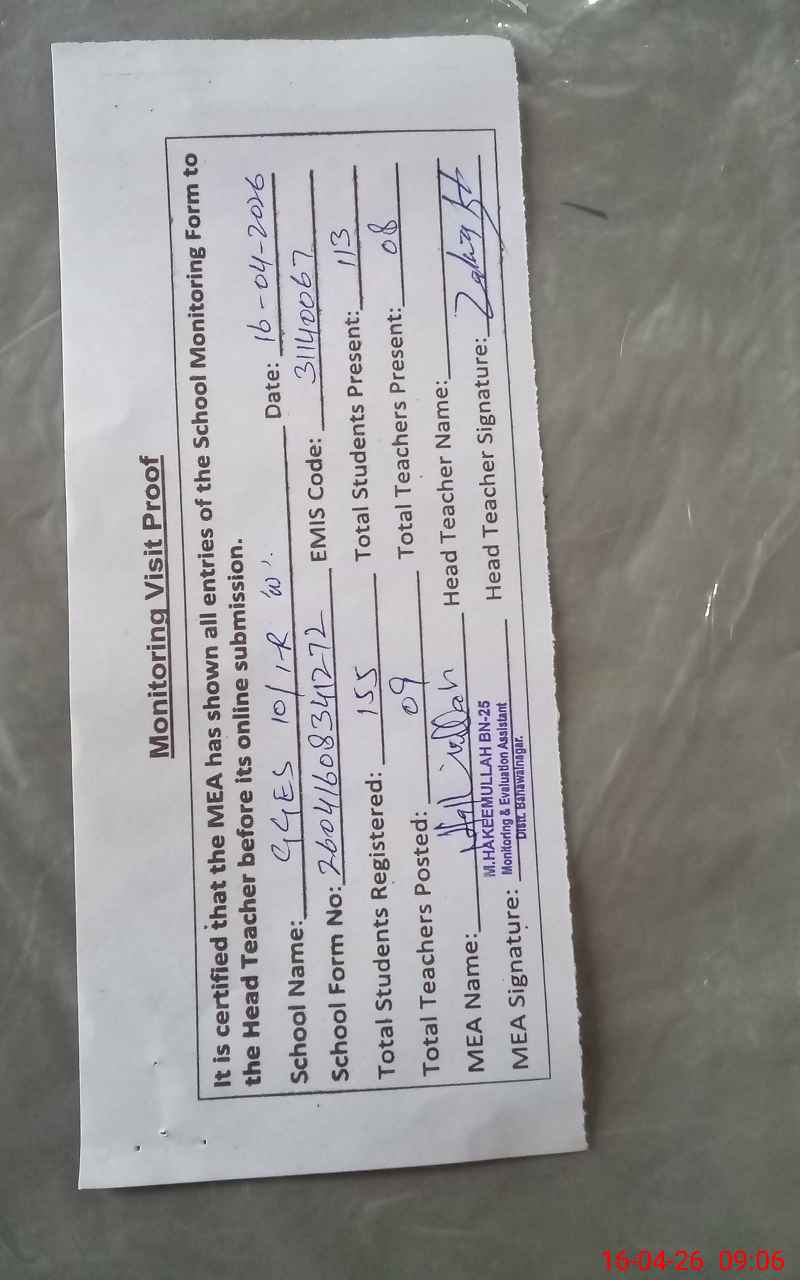 Monitoring Visit Proof
It is certified that the MEA has shown all entries of the School Monitoring Form to
the Head Teacher before its online submission.
School Name: GGES 10/1-R 'W'. Date: 16-04-2026
School Form No: 26041608341272 EMIS Code: 31140067
Total Students Registered: 155 Total Students Present: 113
Total Teachers Posted: 09 Total Teachers Present: 08
MEA Name: Head Teacher Name:
M.HAKEEMULLAH BN-25
Monitoring & Evaluation Assistant
Distt. Bahawalnagar.
MEA Signature: Head Teacher Signature:
16-04-26 09:06